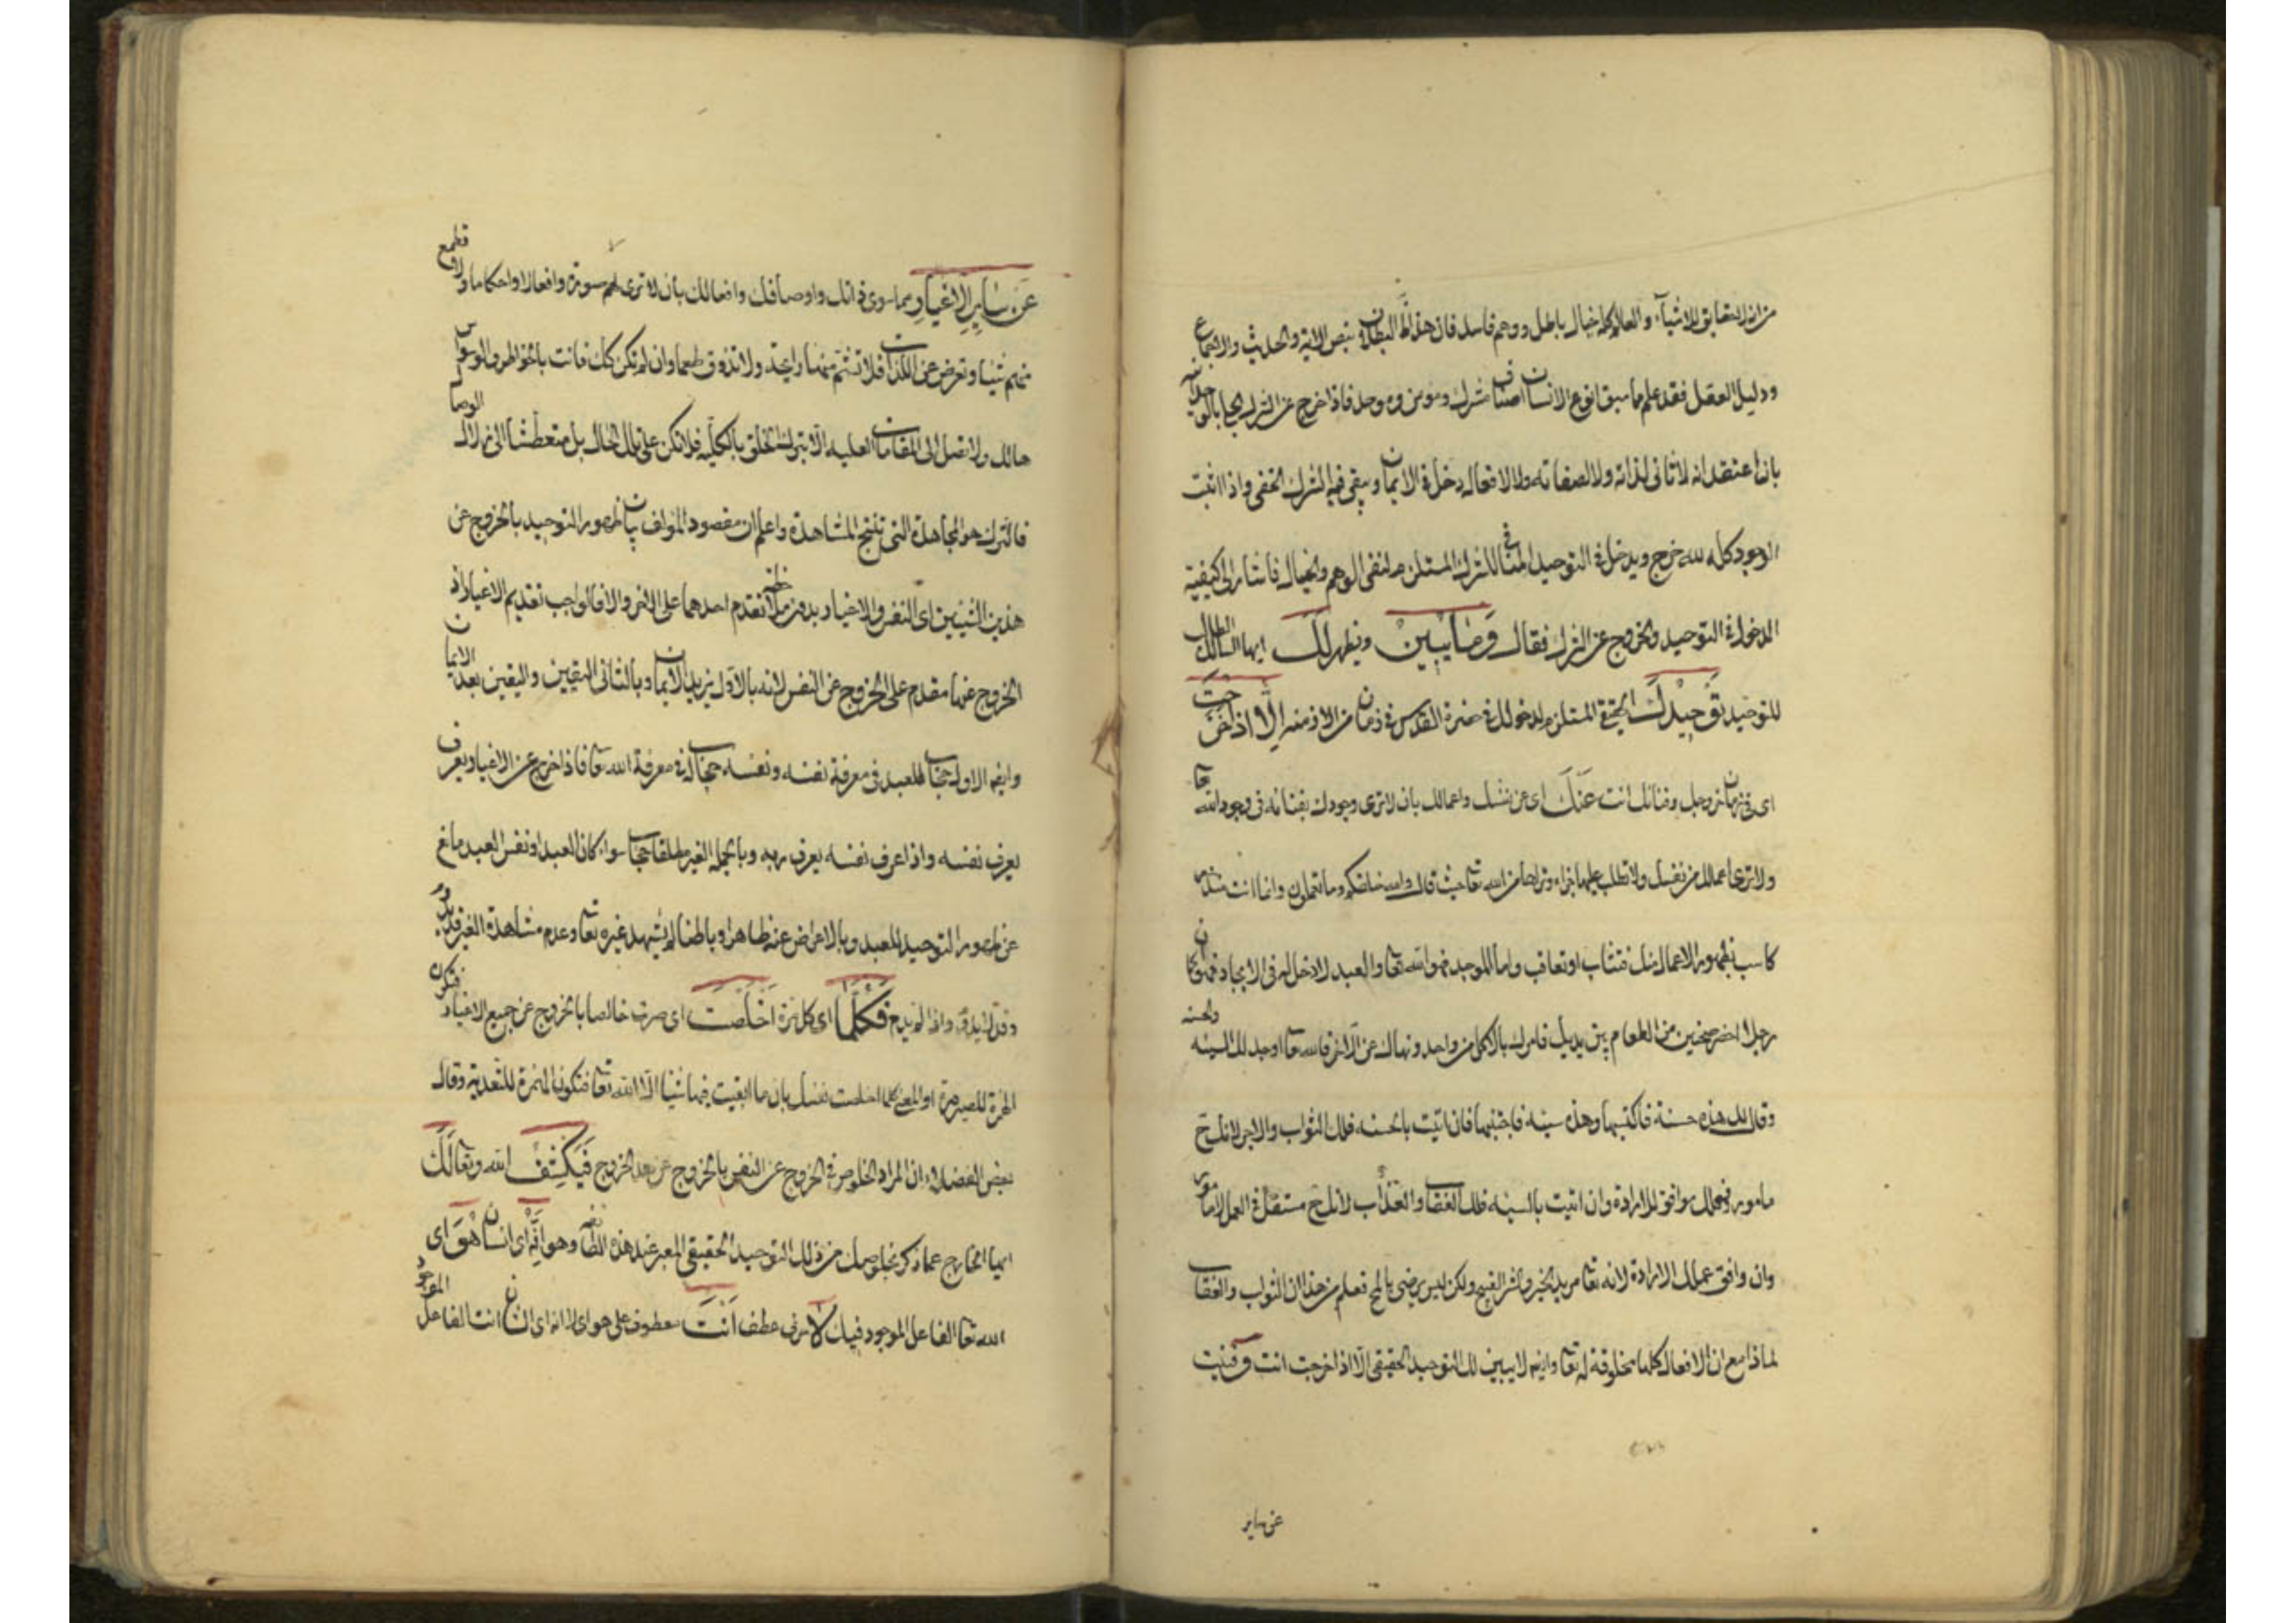 من ان الحقايق للاشياء والعالم كله خيال باطل ووهم فاسد فان هذا البطلان بنص الاية والحديث والاجماع
ودليل العقل فقد علم مما سبق انواع الانسان اصناف مشرك ومومن وموحد فاذا خرج عن الشرك
بان اعتقد انه لا ثانى لذاته ولا لصفاته ولا لافعاله دخل فى الايمان ويبقى فيه الشرك الخفى واذا اثبت
الوجود كله لله خرج ويدخل فى التوحيد المنافى للشرك المستلزم لنفى الوهم والخيال فاشار الى كيفية
الدخول فى التوحيد والخروج عن الشرك فقال وَمَا يَبِينْ ويظهر لَكَ ايها السالك الطالب
للتوحيد تَوْحِيْدُكَ الحقيقى المستلزم لدخولك فى حضرة القدس فى زمان من الازمنه اِلَّا اذ اخَرَجْتَ
اى فى زمان خروجك وفنائك انت عَنْكَ اى عن نفسك واعمالك بان لا ترى وجودك بفنائه فى وجود الله تعا
ولا ترى اعمالك من نفسك ولا تطلب عليها جزاء وتراها من الله تعا حيث قال والله خلقكم وما تعملون وانما انت
كاسب بظهور الاعمال منك فتثاب او تعاقب واما الموجد فهو الله تعا والعبد لا دخل له فى الايجاد
رجلا احضر صحنين من الطعام بين يديك فامرك بالاكل من واحد ونهاك عن الآخر فالله تعا اوجد لك السيئه والحسنه
وقال لك هذه حسنة فاكتسبها وهذه سيئه فاجتنبها فان اتيت بالحسنه فلك الثواب والاجر لانك ح
مامور فعملك موافق للارادة وان اتيت بالسيئه فلك العقاب والعذاب لانك ح مستقل فى العمل
وان وافق عملك الارادة لانه تعا مريد الخير والشر القبيح ولكن ليس يرضى بالمح فعلم من هذا ان الثواب والعقاب
لماذا مع ان الافعال كلها مخلوقة له تعا وايضا لا يبين لك التوحيد الحقيقى الا اذا خرجت انت وفنيت
عن ساير
عَن سَايرِ الاَغْيَارِ مما سوى ذاتك واوصافك وافعالك بان لا ترى لهم صورة وافعالا واحكاما ولا تطمع
منهم شيئا وتعرض عن اللذات فلا تشم منها رايحة ولا تذوق طعما وان لم تكن كك فانت بالخواطر والوسواس
هالك ولا تصل الى المقامات العليه الا بترك الخلق بالكليه فلا تكن على تلك الحال بل متعطشا الى زلال الوصال
فالترك هو المجاهدة التى تنتج المشاهدة واعلم ان مقصود المولف بيان ظهور التوحيد بالخروج عن
هذين الشيئين اى النفس والاغيار بدون ملاحظه تقدم احدهما على الاخر والا فالواجب تقديم الاغيار اذ
الخروج عنها مقدم على الخروج عن النفس لانه بالاول يزيد الايمان وبالثانى اليقين واليقين بعد الايمان
وايضا الاول حجاب للعبد فى معرفة نفسه ونفسه حجاب له فى معرفة الله تعا فاذا خرج عن الاغيار يعرف
يعرف نفسه واذا عرف نفسه يعرف ربه وبالجمله الغير مطلقا حجاب سواء كان العبد او نفس العبد مانع
عن ظهور التوحيد للعبد وبالاعراض عنه ظاهرا وباطنا لم يشهد غيره تعا وعدم مشاهدة الغير قد يدوم
وقد لا يدوم واذا لم يدم فَكُلَّمَا اى كل مرة اَخْلَصْتَ اى صرت خالصا بالخروج عن جميع الاغيار فتكون
الهمزة للصيرورة او المعنى كلما اخلصت نفسك بان ما ابقيت فيها شيئا الا الله تعا فتكون الهمزة للتعدية وقال
بعض الفضلاء ان المراد الخلوص فى الخروج عن النفس بالخروج عن بعد الخروج فَيَكْشِفْ الله وتعا لَكَ
ايها الخارج عما ذكر بخلوصك من ذلك التوحيد الحقيقى المعبر عنه بهذه اللفظة وهو اَنَّه اى انسان هُوَ اى
الله تعا الفاعل الموجود فيك لَا حرف عطف اَنْتَ معطوف على هو اى لا انه اى ان انت الفاعل الموجود